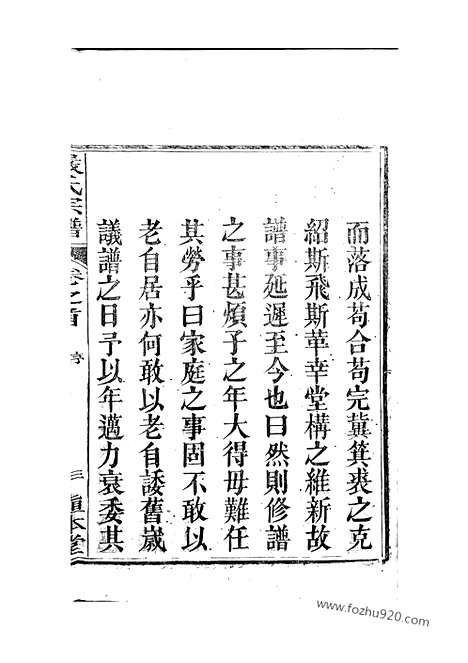 而落成苟合苟完冀箕裘之克
紹斯飛斯革幸堂構之維新故
譜事延遲至今也曰然則修譜
之事甚煩子之年大得毋難任
其勞乎曰家庭之事固不敢以
老自居亦何敢以老自諉舊歲
議譜之日予以年邁力衰委其
氏宗譜
卷之首
三
本堂
www.fozhu920.com